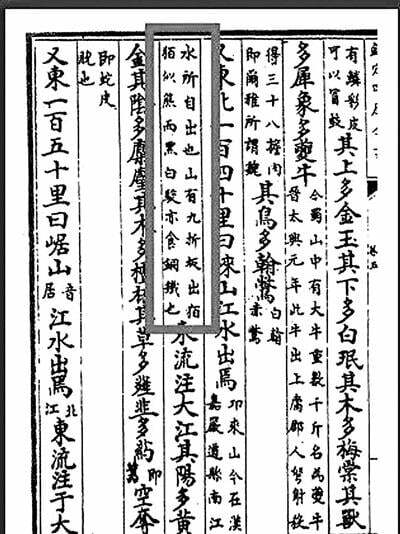 卷五
有鱗彩皮
可以冒鼓
其上多金玉其下多白珉其木多梅棠其獸
多犀象多夔牛
今蜀山中有大牛重數千斤名為夔牛
晉太興元年此牛出上庸郡人弩射殺
得三十八擔肉
即爾雅所謂魏
其鳥多翰鷩
白翰
赤鷩
又東北一百四十里曰崍山江水出焉
邛來山今在漢
嘉嚴道縣南江
水所自出也山有九折坂出狛
狛似熊而黑白駮亦食銅鐵也
東流注大江其陽多黄
金其陰多麋麈其木多檀柘其草多䪥韭多葯
即
空奪
即蛇皮
脱也
又東一百五十里曰崌山
音
居
江水出焉
北
江
東流注于大